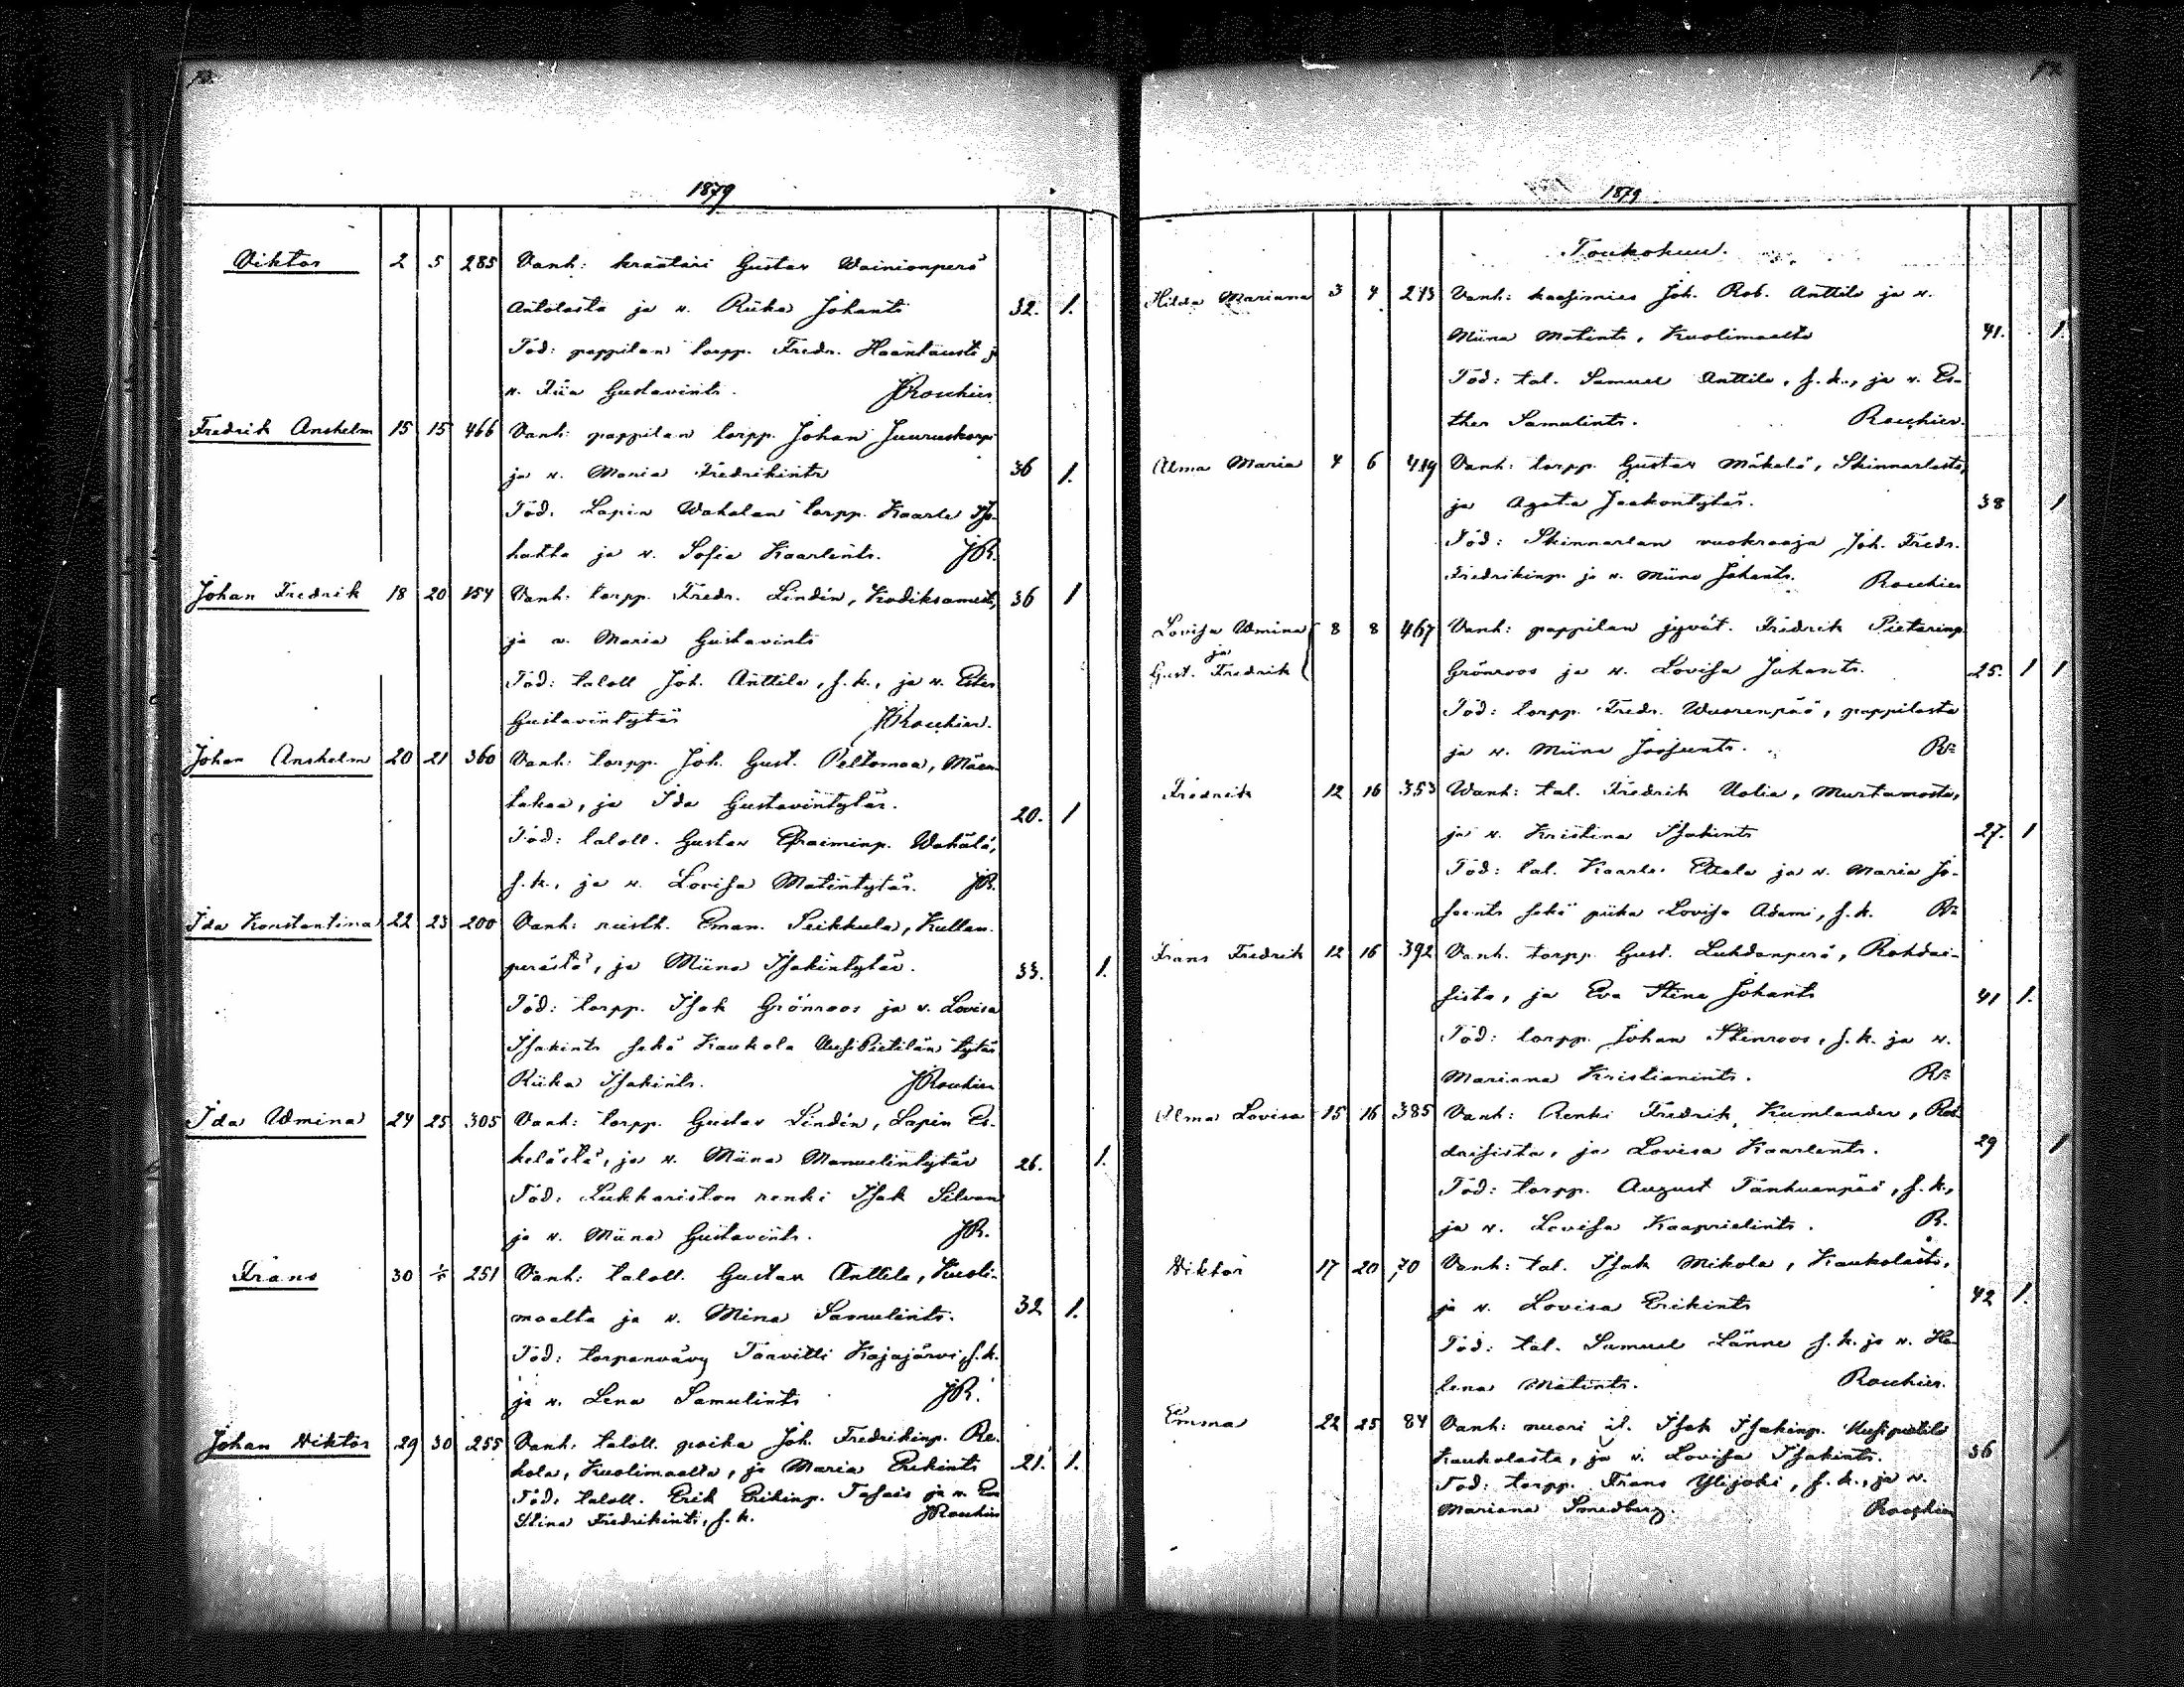 1879
Viktor 2 5 285 Vanh: kräätäri Gustav Wainionperä
Antolasta ja v. Riika Johants 32. 1.
Tod: pappilan torpp. Fredr. Haantausta j
v. Fiia Gustavints. JRoschier
Fredrik Anshelm 15 15 466 Vanh: pappilan torpp. Johan Juuruskorpi
ja v. Maria Fredrikints 36 1.
Tod. Lapin Wahalan torpp. Kaarle Iso-
hatta ja v. Sofia Kaarlents. JR.
Johan Fredrik 18 20 154 Vanh: torpp. Fredr. Lindén, Kodiksamista, 36 1
ja v. Maria Gustavints
Tod: taloll Joh. Anttila, s.k., ja v. Ester
Gustavintytär JRoschier.
Johan Anshelm 20 21 360 Vanh: torpp. Joh. Gust. Peltomaa, Mäen
takaa, ja Ida Gustavintytär. 20. 1
Tod: taloll. Gustav Efraiminp. Wahälä,
s.k., ja v. Lovisa Matintytär. JR.
Ida Konstantina 22 23 200 Vanh: rustth. Eman. Seikkula, Kullan-
perästä, ja Miina Isakintytär. 33. 1.
Tod: torpp. Isak Grönroos ja v. Lovisa
Isakints sekä Kaukola UusiPietilän tytär
Riika Isakints. JRoschier
Ida Wmina 24 25 305 Vanh: torpp. Gustav Lindén, Lapin Es-
kelästä, ja v. Miina Manuelintytär 26. 1.
Tod: Lukkariston renki Isak Silvan
ja v. Miina Gustavints. JR.
Frans 30 1/5 251 Vanh: taloll. Gustav Anttila, Kuoli-
maalta ja v. Mina Samulints. 32 1.
Tod: torpanvävy Taavitti Kajajärvi, s.k.
ja v. Lena Samulints JR.
Johan Viktor 29 30 255 Vanh: taloll. poika Joh. Fredrikinp. Re-
kola, Kuolimaalta, ja Maria Erikints 21. 1.
Tod: taloll. Erik Erikinp. Tasais ja v. Eva
Stina Fredrikints, s.k. JRoschier
1879
Toukokuu.
Hilda Mariana 3 4 243 Vanh: kaasimies Joh. Rob. Anttila ja v.
Miina Matints, Kuolimaalta 41. 1.
Tod: tal. Samuel Anttila, s.k., ja v. Es-
ther Samulints. Roschier.
Alma Maria 4 6 419 Vanh: torpp. Gustav Mäkelä, Skinnarlasta,
ja Agata Jaakontytär. 38 1
Tod: Skinnarlan vuokraaja Joh. Fredr.
Fredrikinp. ja v. Miina Johants. Roschier
Lovisa Wmina 8 8 467 Vanh: pappilan jyvät. Fredrik Pietarinp.
ja
Gust. Fredrik Grönroos ja v. Lovisa Johants. 25. 1 1
Tod: torpp. Fredr. Wuorenpää, pappilasta
ja v. Miina Joosunts. Rr
Fredrik 12 16 353 Wanh: tal. Fredrik Uolia, Murtamosta,
ja v. Kristina Isakints 27. 1
Tod: tal. Kaarle Ettala ja v. Maria Jo-
sents sekä piika Lovisa Adami, s.k. Rr
Frans Fredrik 12 16 392 Vanh. torpp. Gust. Luhdanperä, Rohdai-
sista, ja Eva Stina Johants 41 1.
Tod: torpp. Johan Stenroos, s.k. ja v.
Mariana Kristianints. Rr
Alma Lovisa 15 16 385 Vanh: Renki Fredrik Kumlander, Roh-
daisista, ja Lovisa Kaarlents. 29 1
Tod: torpp. August Tanhuanpää, s.k.,
ja v. Lovisa Kaaprielints. R.
Viktor 17 20 70 Vanh: tal. Isak Mikola, Kaukolasta,
ja v. Lovisa Erikints 42 1.
Tod: tal. Samuel Länne s.k. ja v. He-
lena Matints. Roschier.
Emma 22 25 84 Vanh: nuori is. Isak Isakinp. Uusipietilä
Kaukolasta, ja v. Lovisa Isakints. 36 1
Tod: torpp. Frans Ylijoki, s.k., ja v.
Mariana Smedberg. Roschier